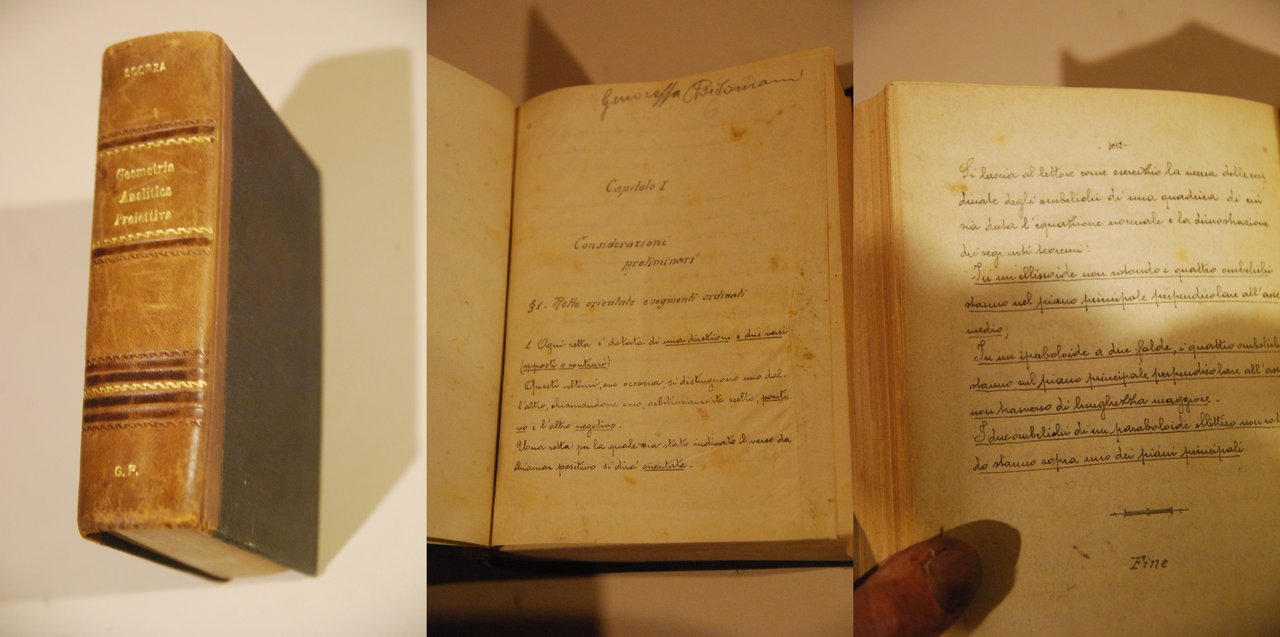 SCORZA
Geometria
Analitica
Proiettiva
G. P.
Capitolo I
Considerazioni
preliminari
§1.- Rette orientate e segmenti ordinati
1. Ogni retta è dotata di una direzione e due versi
(opposti o contrari)
Questi ultimi, ove occorra, si distinguono uno dal-
l'altro, chiamandone uno, arbitrariamente scelto, positi-
vo e l'altro negativo.
Una retta per la quale sia stato indicato il verso da
chiamar positivo si dirà orientata.
Si lascia al lettore come esercizio la ricerca delle coor
dinate degli ombelichi di una quadrica di cui
sia data l'equazione normale e la dimostrazione
dei seguenti teoremi:
In un ellissoide non rotondo i quattro ombelichi
stanno nel piano principale perpendicolare all'asse
medio;
In un iperboloide a due falde, i quattro ombelichi
stanno sul piano principale perpendicolare all'asse
non trasverso di lunghezza maggiore.
I due ombelichi di un paraboloide ellittico non roton
do stanno sopra uno dei piani principali
Fine